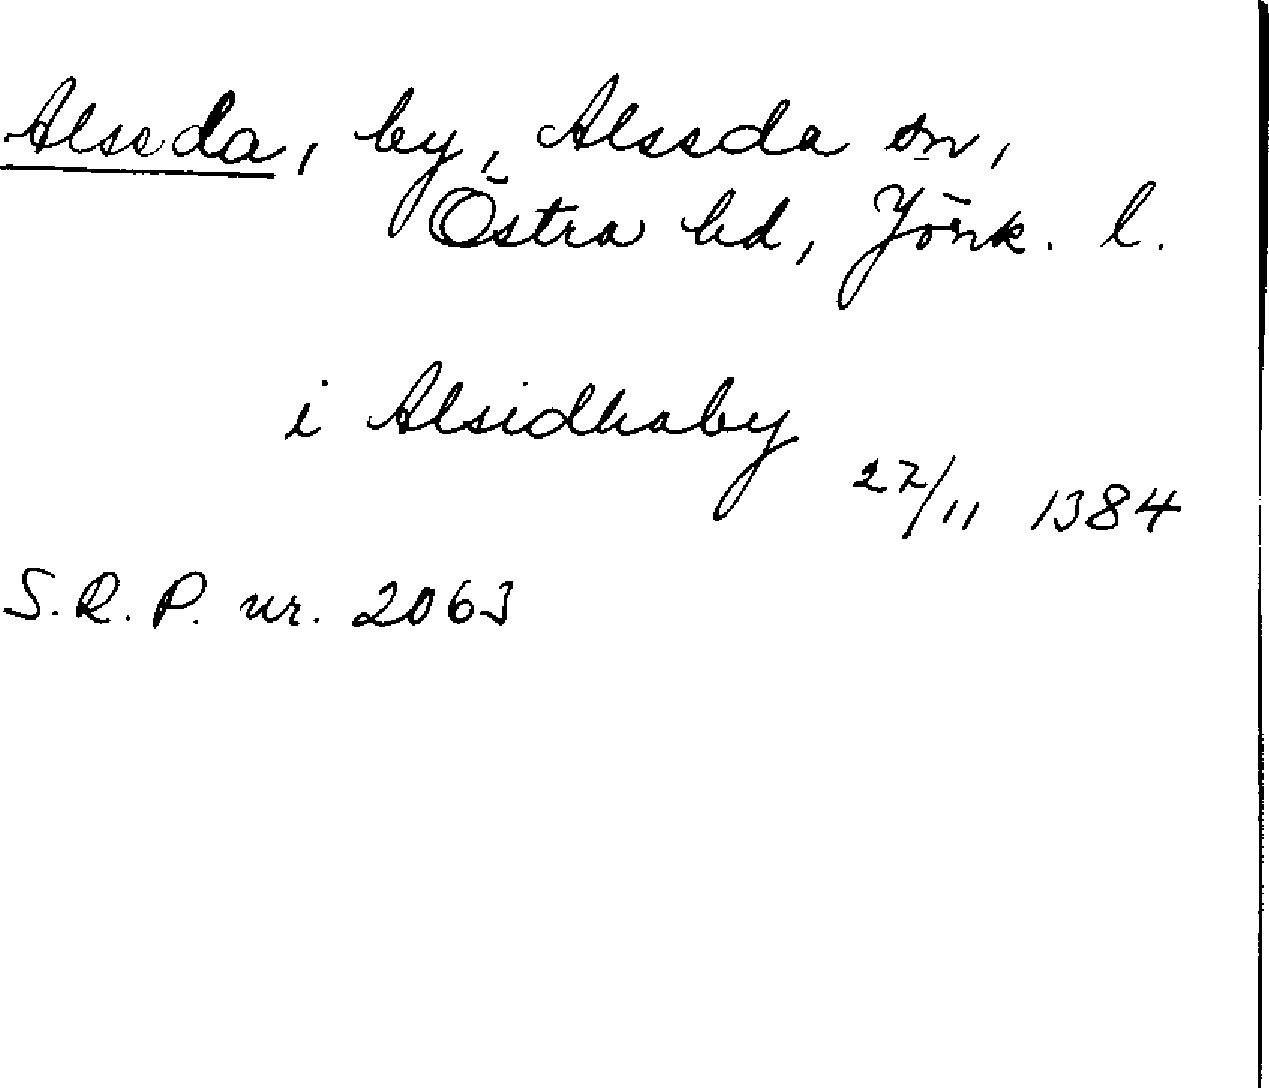 Alseda, by, Alseda sn,
Östra hd, Jönk. l.
i Alsidhaby
27/11 1384
S.R.P. nr. 2063